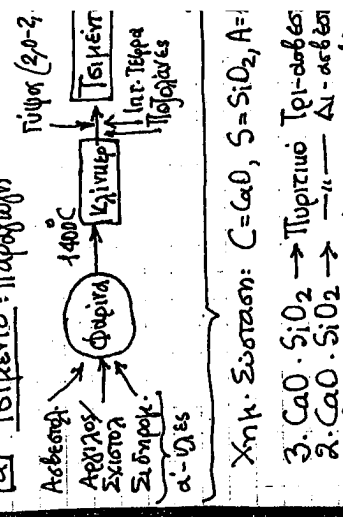 α) Τσιμέντο: Παραγωγή
Ασβεστόλ.
Αργιλος/
Σχιστολ
Σιδηρομ.
α'-ύλες
φαρίνα
1400°C
Κλίνκερ
Γύψος (2,0-2,
Ιπτ. Τέφρα
Ποζολάνες
Τσιμέν
Χημ. Σύσταση: C=CaO, S=SiO2, A=
3. CaO · SiO2 → Πυριτικό Τρι-ασβεσ
2. CaO · SiO2 → —"— Δι-ασβεσ